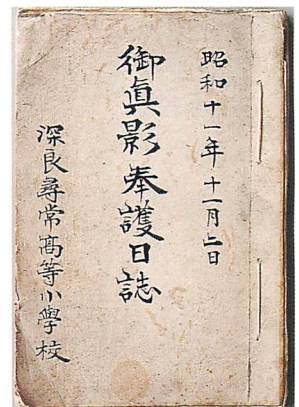 昭和十一年十一月上日
御眞影奉護日誌
深良尋常高等小學校